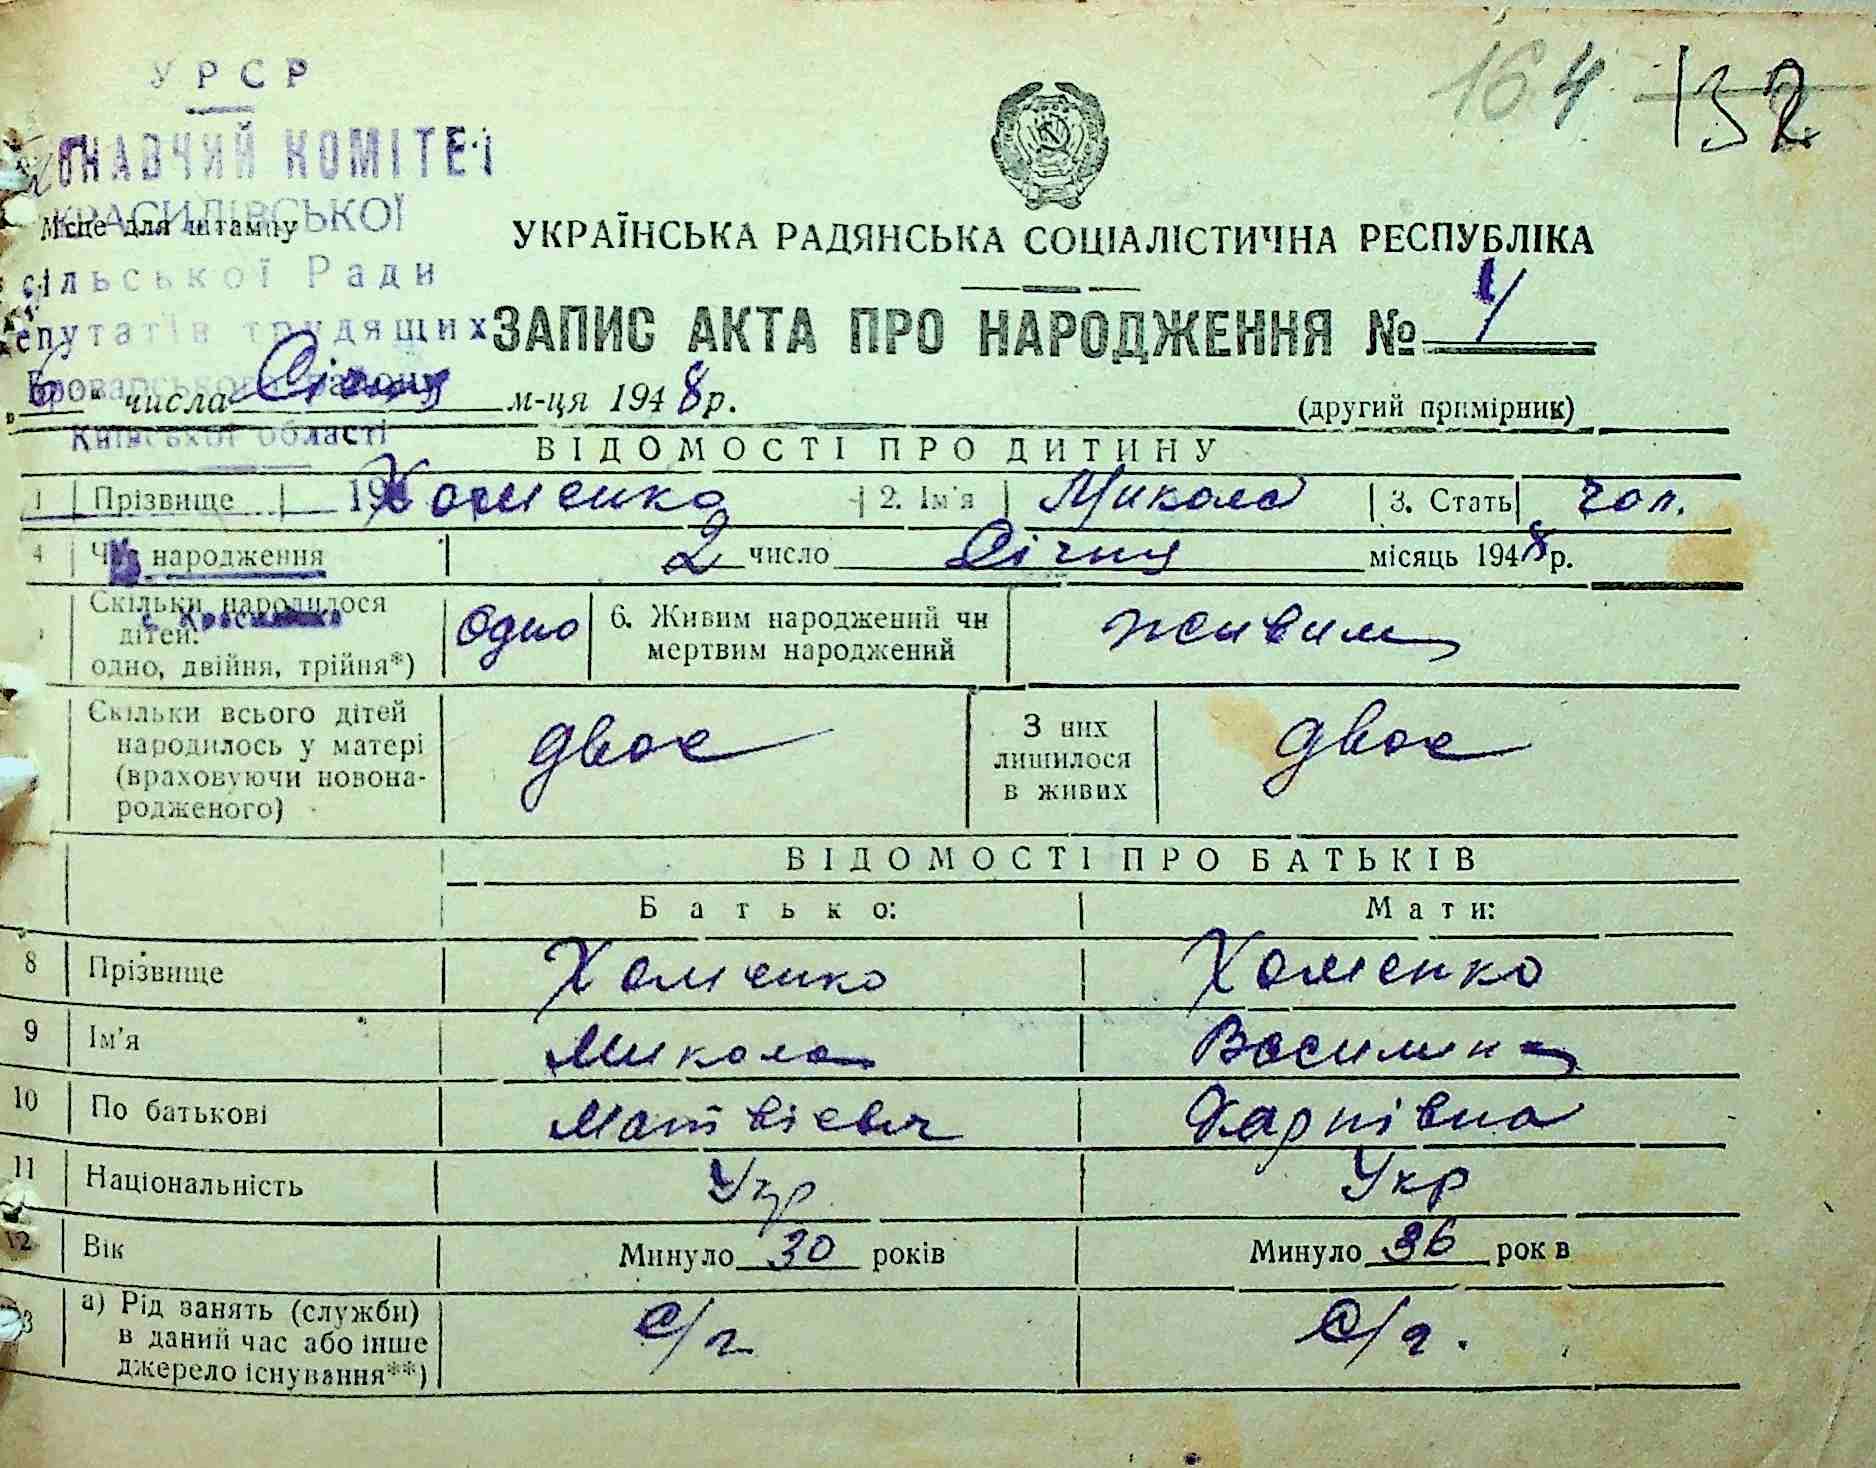 164 132
УРСР
ОНАВЧИЙ КОМІТЕТ
КРАСИЛІВСЬКОЇ
Місце для штампу
сільської Ради
епутатів трудящих
Броварського району
Київської області
УКРАЇНСЬКА РАДЯНСЬКА СОЦІАЛІСТИЧНА РЕСПУБЛІКА
ЗАПИС АКТА ПРО НАРОДЖЕННЯ №
„6“ числа Січня м-ця 1948 р.
(другий примірник)
ВІДОМОСТІ ПРО ДИТИНУ
1 Прізвище Хоменко 2. Ім'я Микола 3. Стать чол.
4 Час народження 2 число Січня місяць 1948 р.
с. Красилівка
Скільки народилося дітей: одно, двійня, трійня*) одно 6. Живим народжений чи мертвим народжений живим
Скільки всього дітей народилось у матері (враховуючи новонародженого) двоє З них лишилося в живих двоє
ВІДОМОСТІ ПРО БАТЬКІВ
Батько: Мати:
8 Прізвище Хоменко Хоменко
9 Ім'я Микола Василина
10 По батькові Матвієвич Карпівна
11 Національність Укр Укр
12 Вік Минуло 30 років Минуло 36 рок в
13 а) Рід занять (служби) в даний час або інше джерело існування**) С/г С/г.